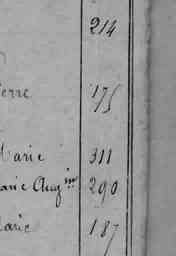 214
erre 175
Marie 311
arie Aug.ine 290
Marie 187